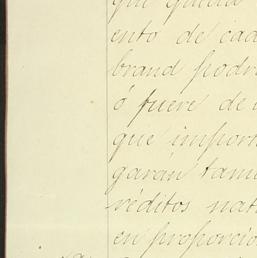 que queda
ento de cad
brand podr
ó fuere de
que import
garán tam
réditos nat
en proporcio